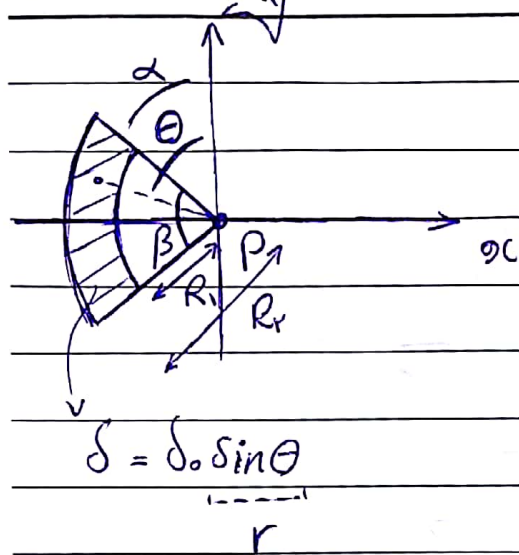 y
α
θ
β
P
x
R₁
R₂
δ = δ₀ sinθ
r